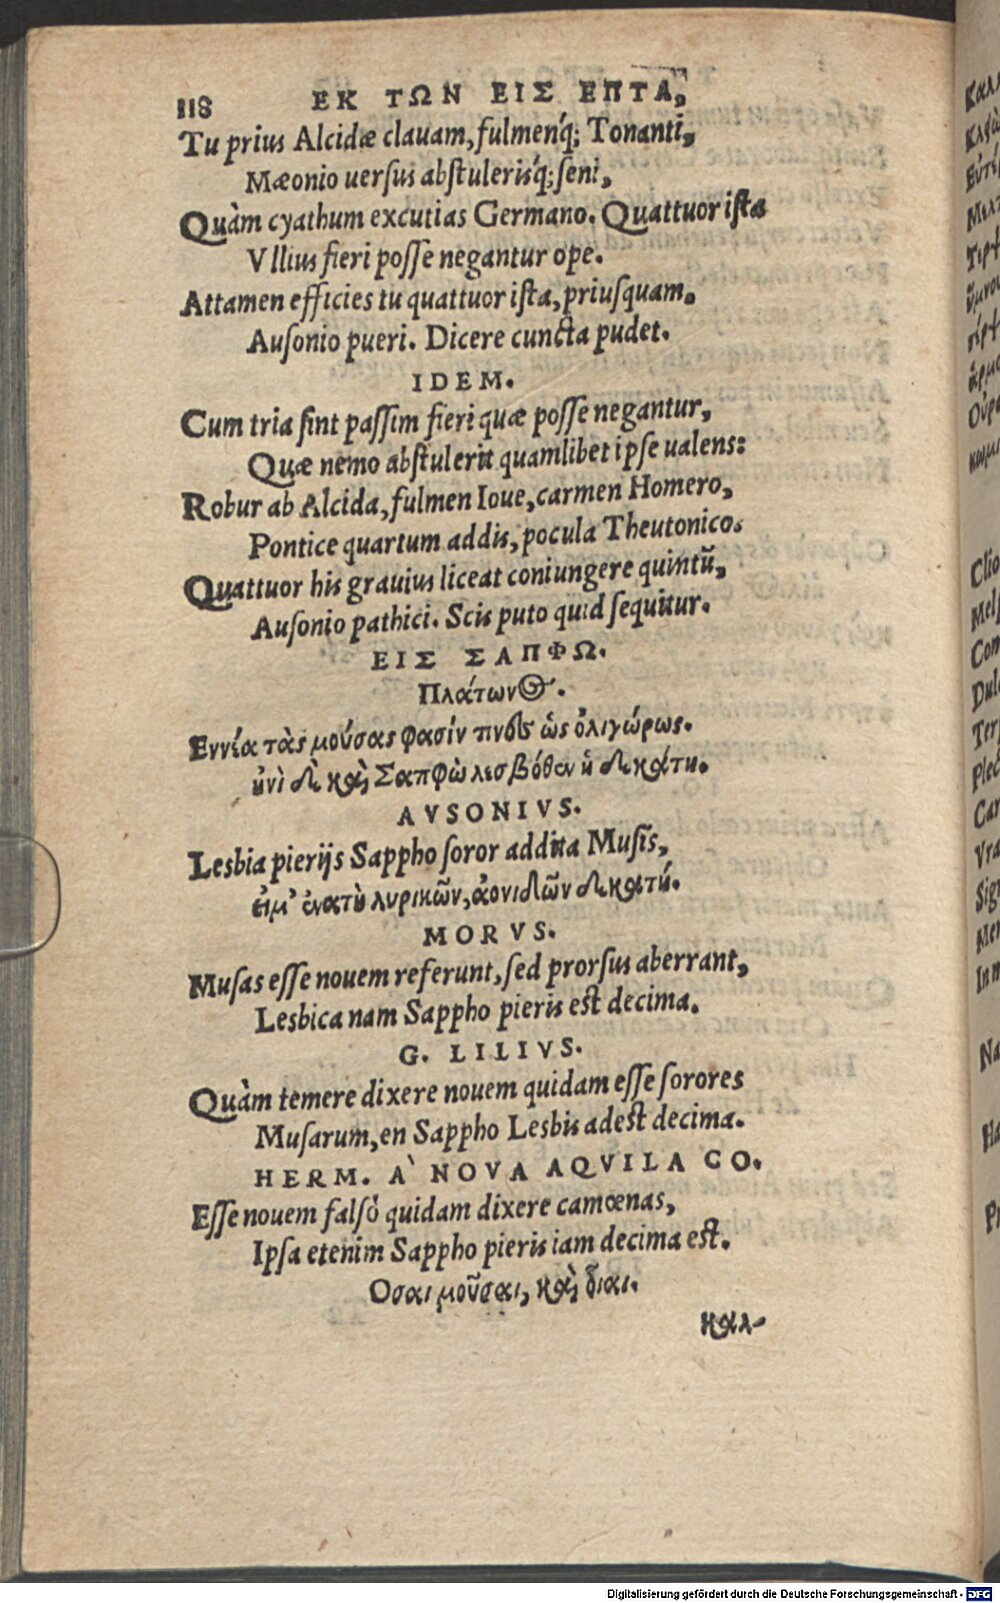 118 ΕΚ ΤΩΝ ΕΙΣ ΕΠΤΑ,
Tu prius Alcidæ clauam, fulmenq́; Tonanti,
Mæonio uersus abstulerisq́; seni,
Quàm cyathum excutias Germano. Quattuor ista
Vllius fieri posse negantur ope.
Attamen efficies tu quattuor ista, priusquam.
Ausonio pueri. Dicere cuncta pudet.
IDEM.
Cum tria sint passim fieri quæ posse negantur,
Quæ nemo abstulerit quamlibet ipse ualens:
Robur ab Alcida, fulmen Ioue, carmen Homero,
Pontice quartum addis, pocula Theutonico.
Quattuor his grauius liceat coniungere quintū,
Ausonio pathici. Scis puto quid sequitur.
ΕΙΣ ΣΑΠΦΩ.
Πλάτωνος.
Εννέα τὰς μούσας φασίν τινες ὡς ὀλιγώρως.
ἠνὶ δὲ καὶ Σαπφὼ λεσβόθεν ἡ δεκάτη.
AVSONIVS.
Lesbia pierijs Sappho soror addita Musis,
εἰμ' ἐνατὴ λυρικῶν, ἀονιδῶν δεκατή.
MORVS.
Musas esse nouem referunt, sed prorsus aberrant,
Lesbica nam Sappho pieris est decima.
G. LILIVS.
Quàm temere dixere nouem quidam esse sorores
Musarum, en Sappho Lesbis adest decima.
HERM. A` NOVA AQVILA CO.
Esse nouem falsò quidam dixere camœnas,
Ipsa etenim Sappho pieris iam decima est.
Οσαι μοῦσαι, καὶ δῖαι.
καλ-
Digitalisierung gefördert durch die Deutsche Forschungsgemeinschaft - DFG